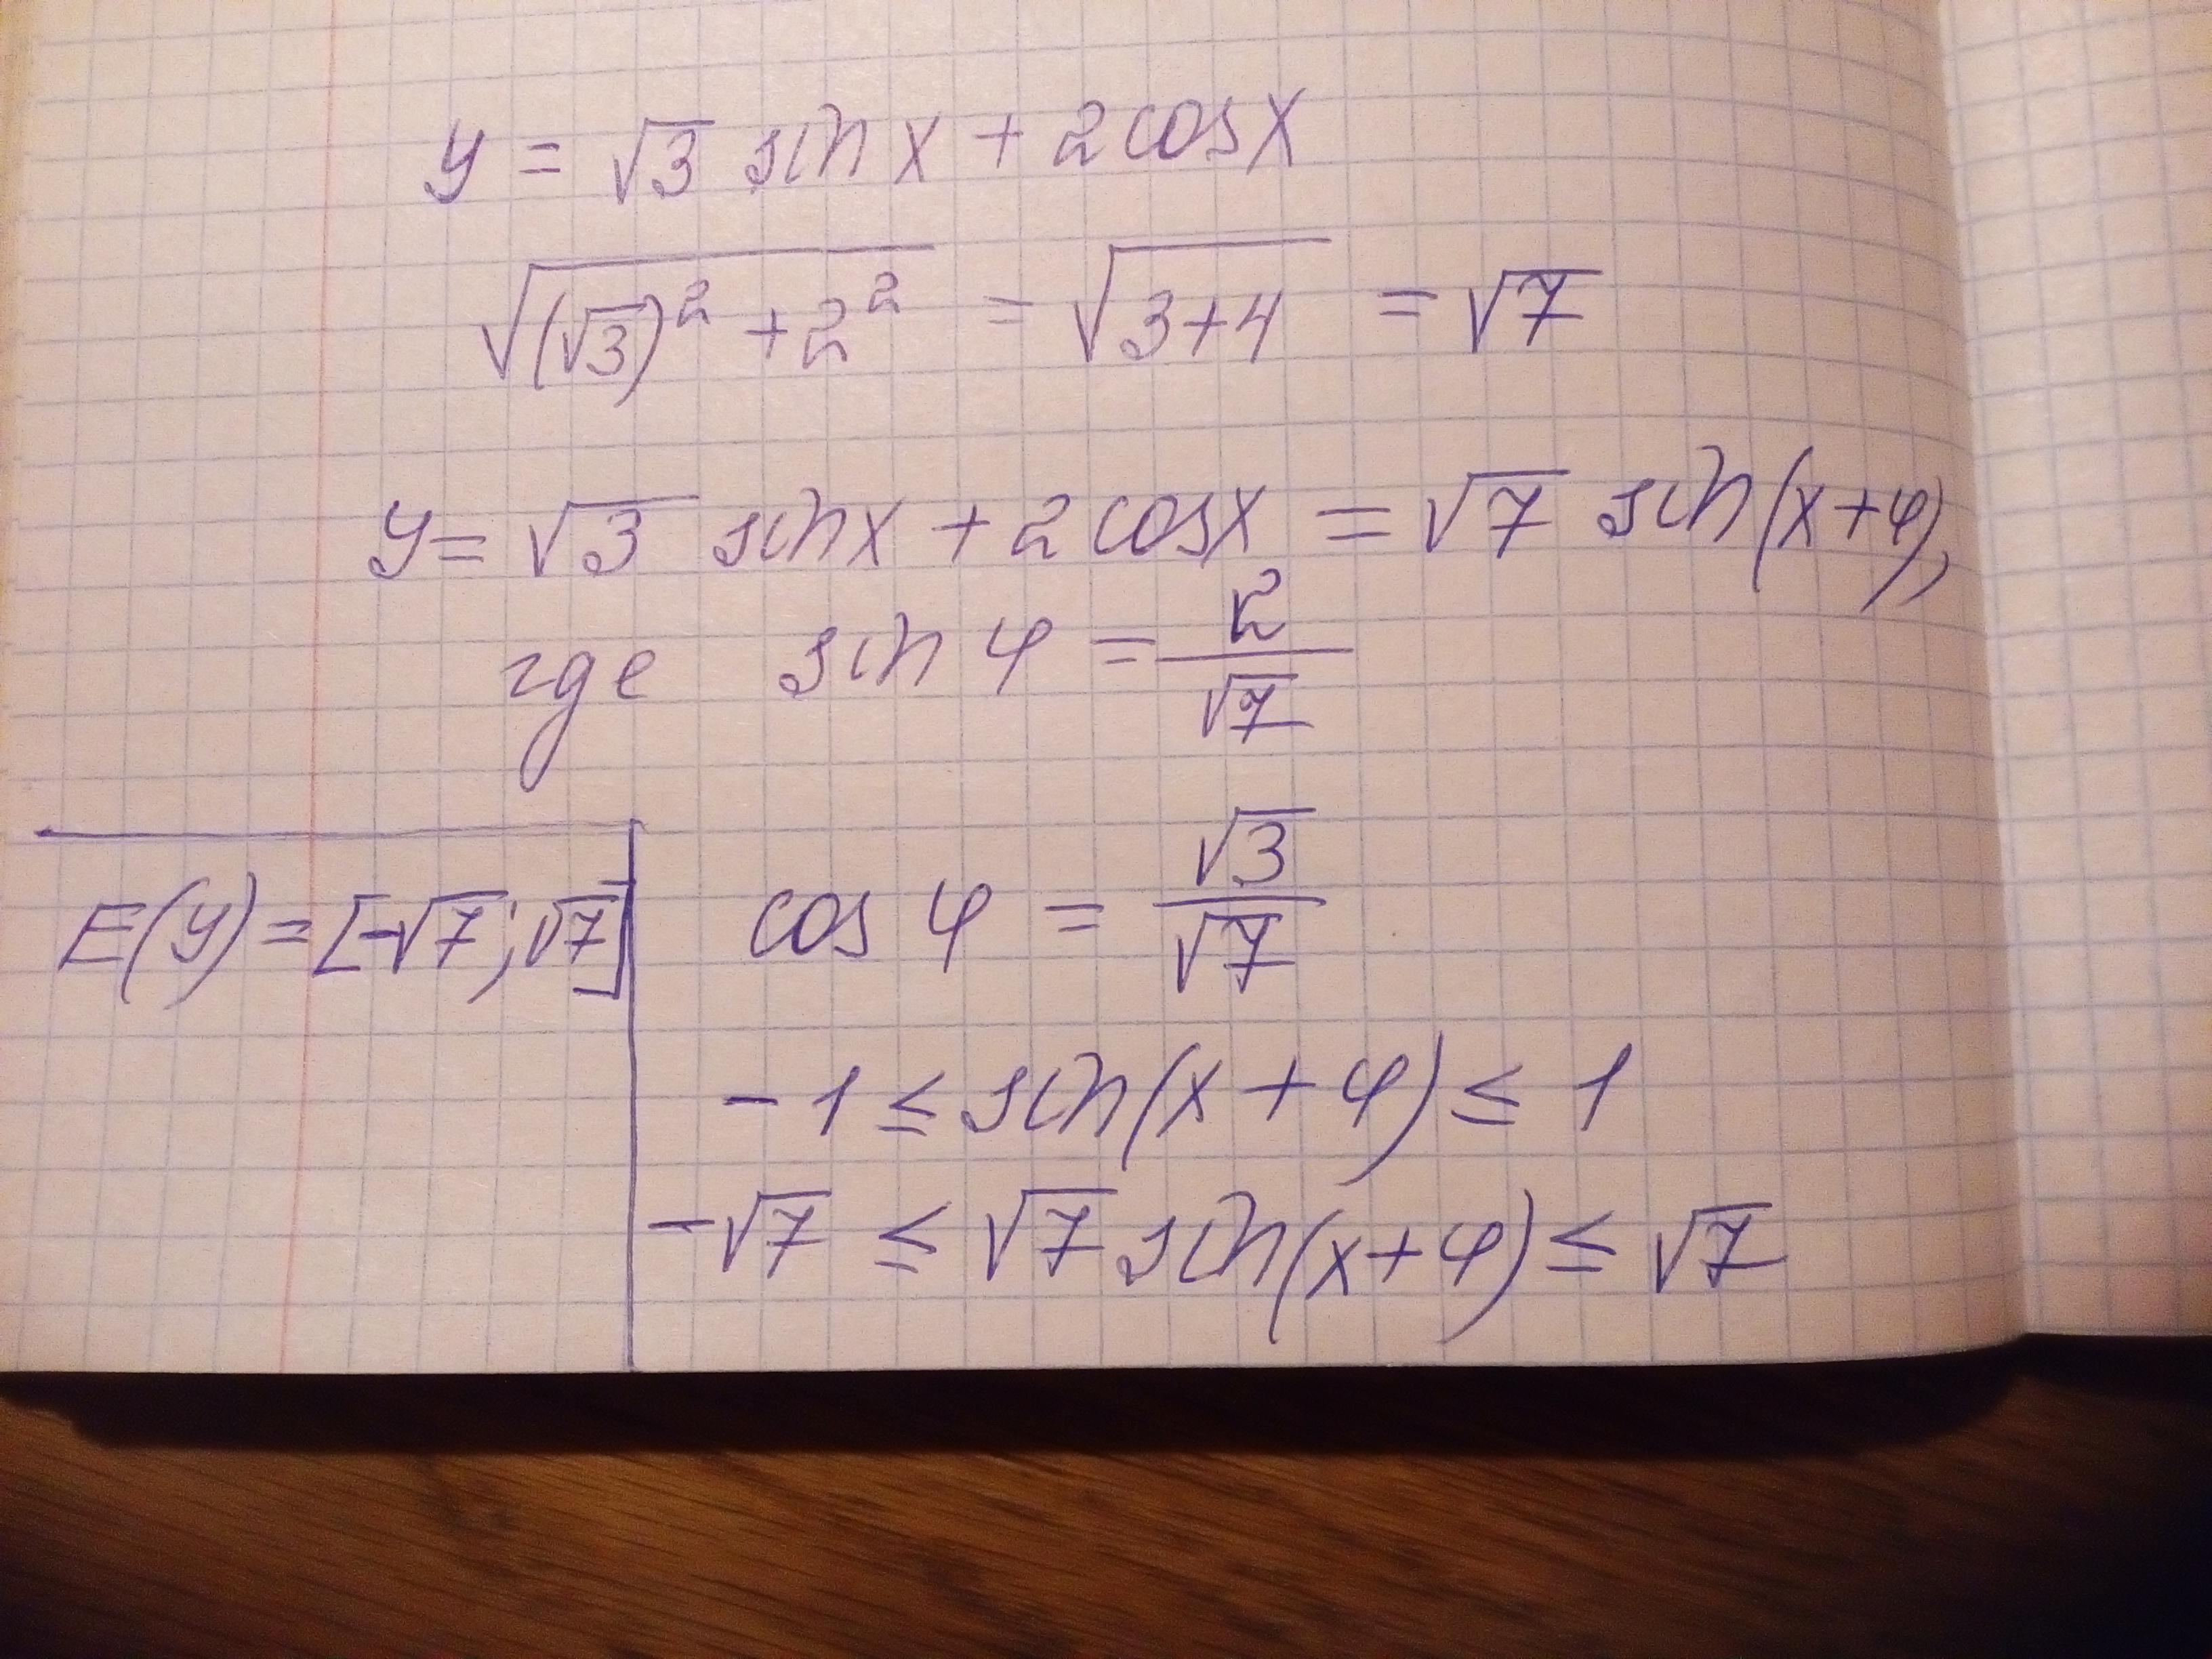 y = √3 sin x + 2 cos x
√((√3)² + 2²) = √(3+4) = √7
y = √3 sin x + 2 cos x = √7 sin(x+φ),
где sin φ = 2/√7
cos φ = √3/√7
E(y) = [-√7; √7]
-1 ≤ sin(x + φ) ≤ 1
-√7 ≤ √7 sin(x+φ) ≤ √7